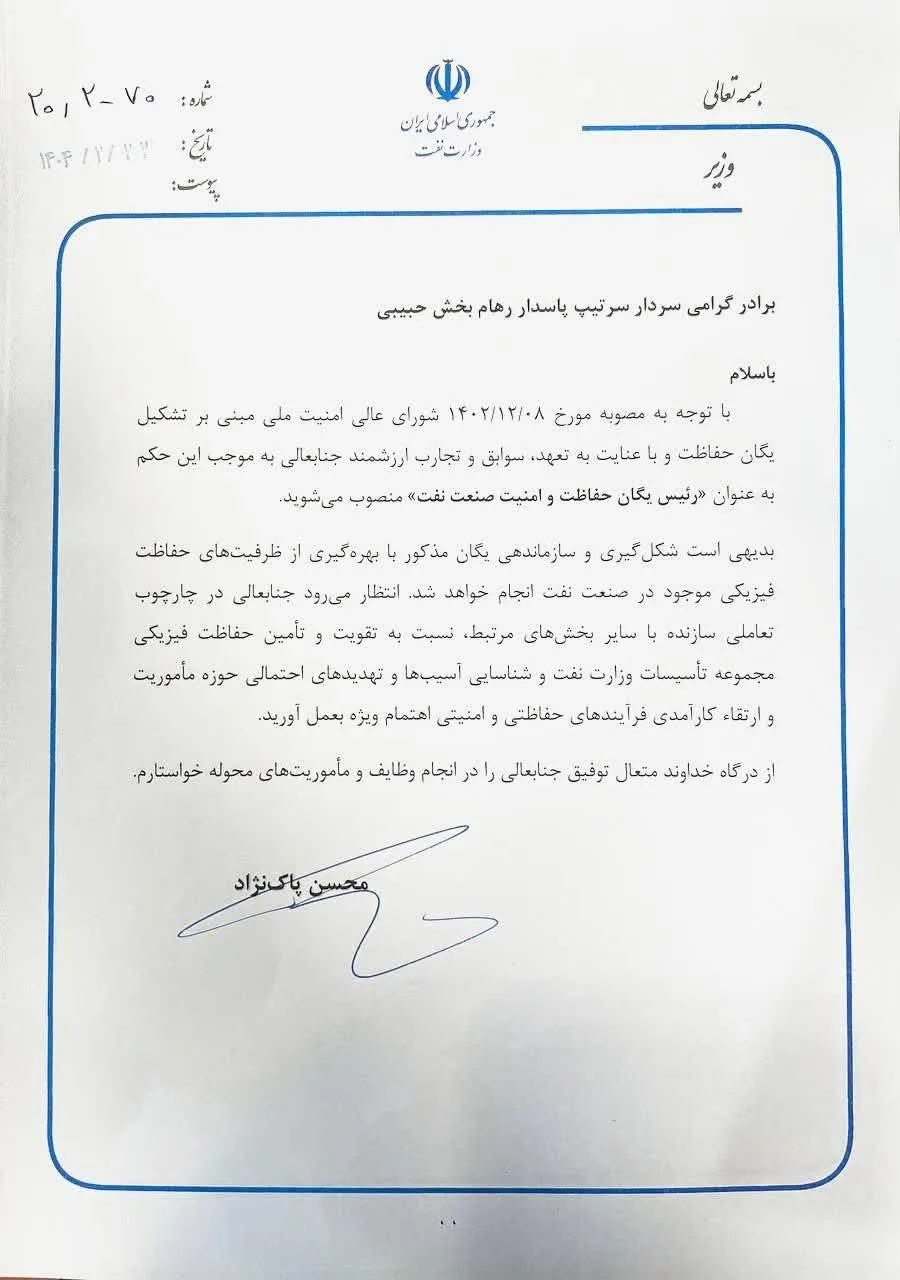 بسمه تعالی
جمهوری اسلامی ایران
وزارت نفت
وزیر
شماره: ۲۰/۲-۷۰
تاریخ: ۱۴۰۴/
پیوست:
برادر گرامی سردار سرتیپ پاسدار رهام بخش حبیبی
باسلام
با توجه به مصوبه مورخ ۱۴۰۲/۱۲/۰۸ شورای عالی امنیت ملی مبنی بر تشکیل
یگان حفاظت و با عنایت به تعهد، سوابق و تجارب ارزشمند جنابعالی به موجب این حکم
به عنوان «رئیس یگان حفاظت و امنیت صنعت نفت» منصوب می‌شوید.
بدیهی است شکل‌گیری و سازماندهی یگان مذکور با بهره‌گیری از ظرفیت‌های حفاظت
فیزیکی موجود در صنعت نفت انجام خواهد شد. انتظار می‌رود جنابعالی در چارچوب
تعاملی سازنده با سایر بخش‌های مرتبط، نسبت به تقویت و تأمین حفاظت فیزیکی
مجموعه تأسیسات وزارت نفت و شناسایی آسیب‌ها و تهدیدهای احتمالی حوزه مأموریت
و ارتقاء کارآمدی فرآیندهای حفاظتی و امنیتی اهتمام ویژه بعمل آورید.
از درگاه خداوند متعال توفیق جنابعالی را در انجام وظایف و مأموریت‌های محوله خواستارم.
محسن پاک‌نژاد